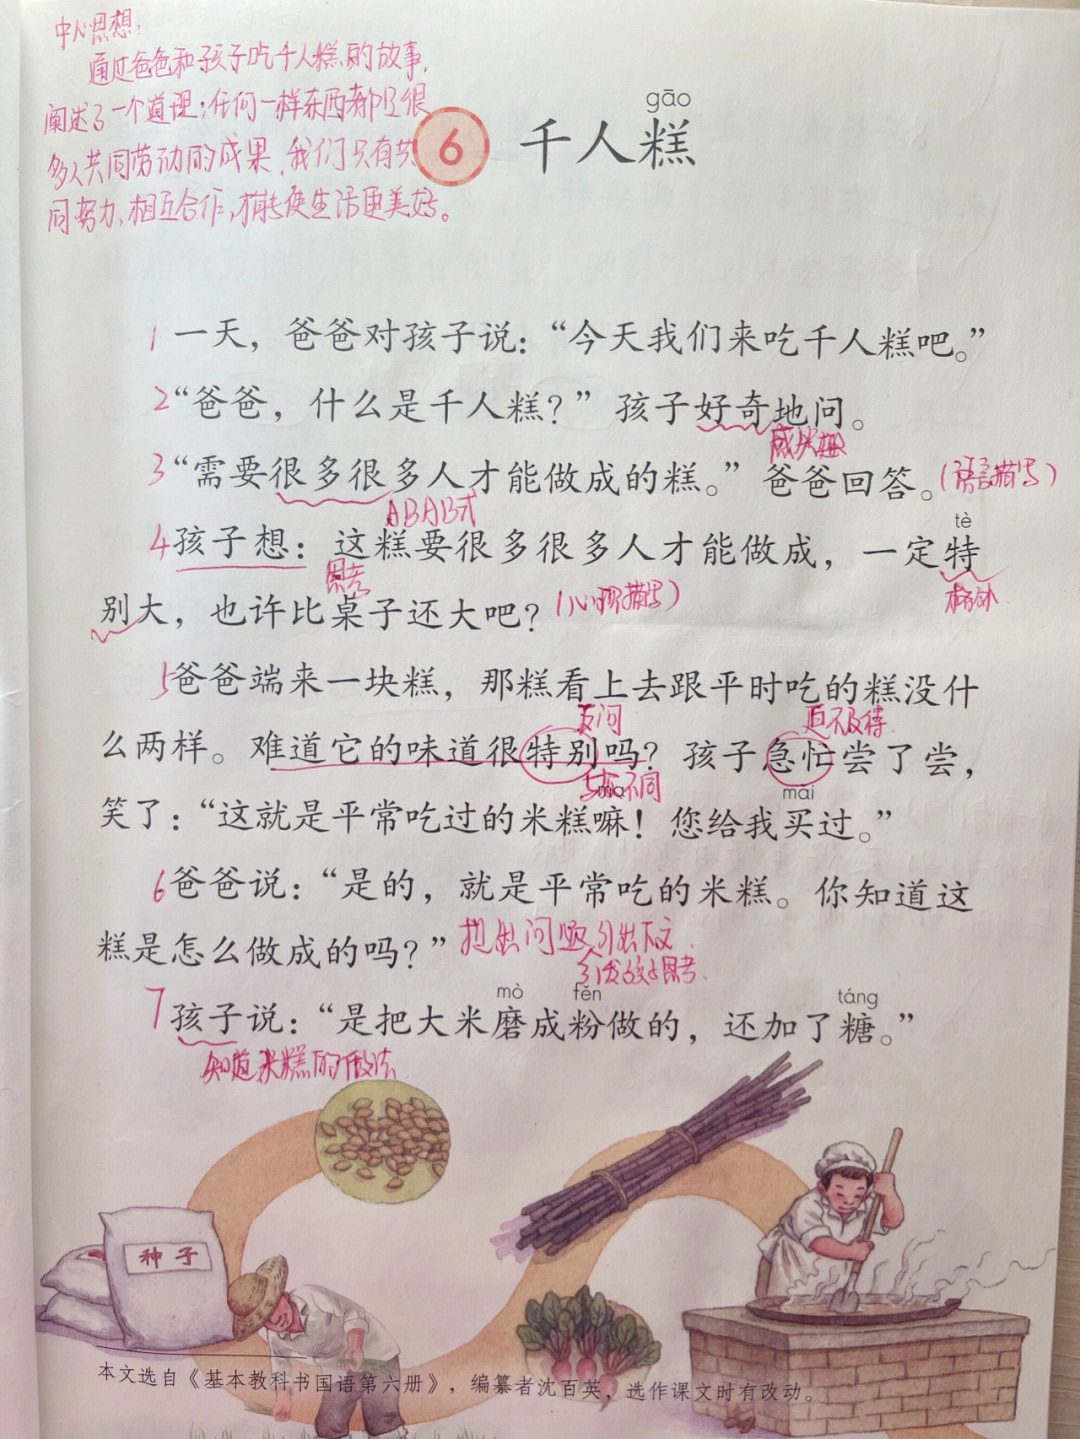 中心思想:
通过爸爸和孩子吃千人糕的故事,
阐述了一个道理;任何一样东西都是很
多人共同劳动的成果,我们只有共
同努力、相互合作,才能使生活更美好。
gāo
6 千人糕
1 一天，爸爸对孩子说：“今天我们来吃千人糕吧。”
2 “爸爸，什么是千人糕？”孩子好奇地问。
感兴趣
3 “需要很多很多人才能做成的糕。”爸爸回答。(语言描写)
ABAB式
tè
4 孩子想：这糕要很多很多人才能做成，一定特
思考
格外
别大，也许比桌子还大吧？(心理描写)
5 爸爸端来一块糕，那糕看上去跟平时吃的糕没什
反问 迫不及待
么两样。难道它的味道很特别吗？孩子急忙尝了尝，
与众不同
ma mǎi
笑了：“这就是平常吃过的米糕嘛！您给我买过。”
6 爸爸说：“是的，就是平常吃的米糕。你知道这
糕是怎么做成的吗？” 提出问题,引出下文.
引发孩子思考.
mò fěn táng
7 孩子说：“是把大米磨成粉做的，还加了糖。”
知道米糕的做法
种子
本文选自《基本教科书国语第六册》，编纂者沈百英，选作课文时有改动。